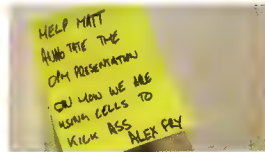 HELP MATT
ANNOTATE THE
OPM PRESENTATION
ON HOW WE ARE
USING CELLS TO
KICK ASS
ALEX FRY